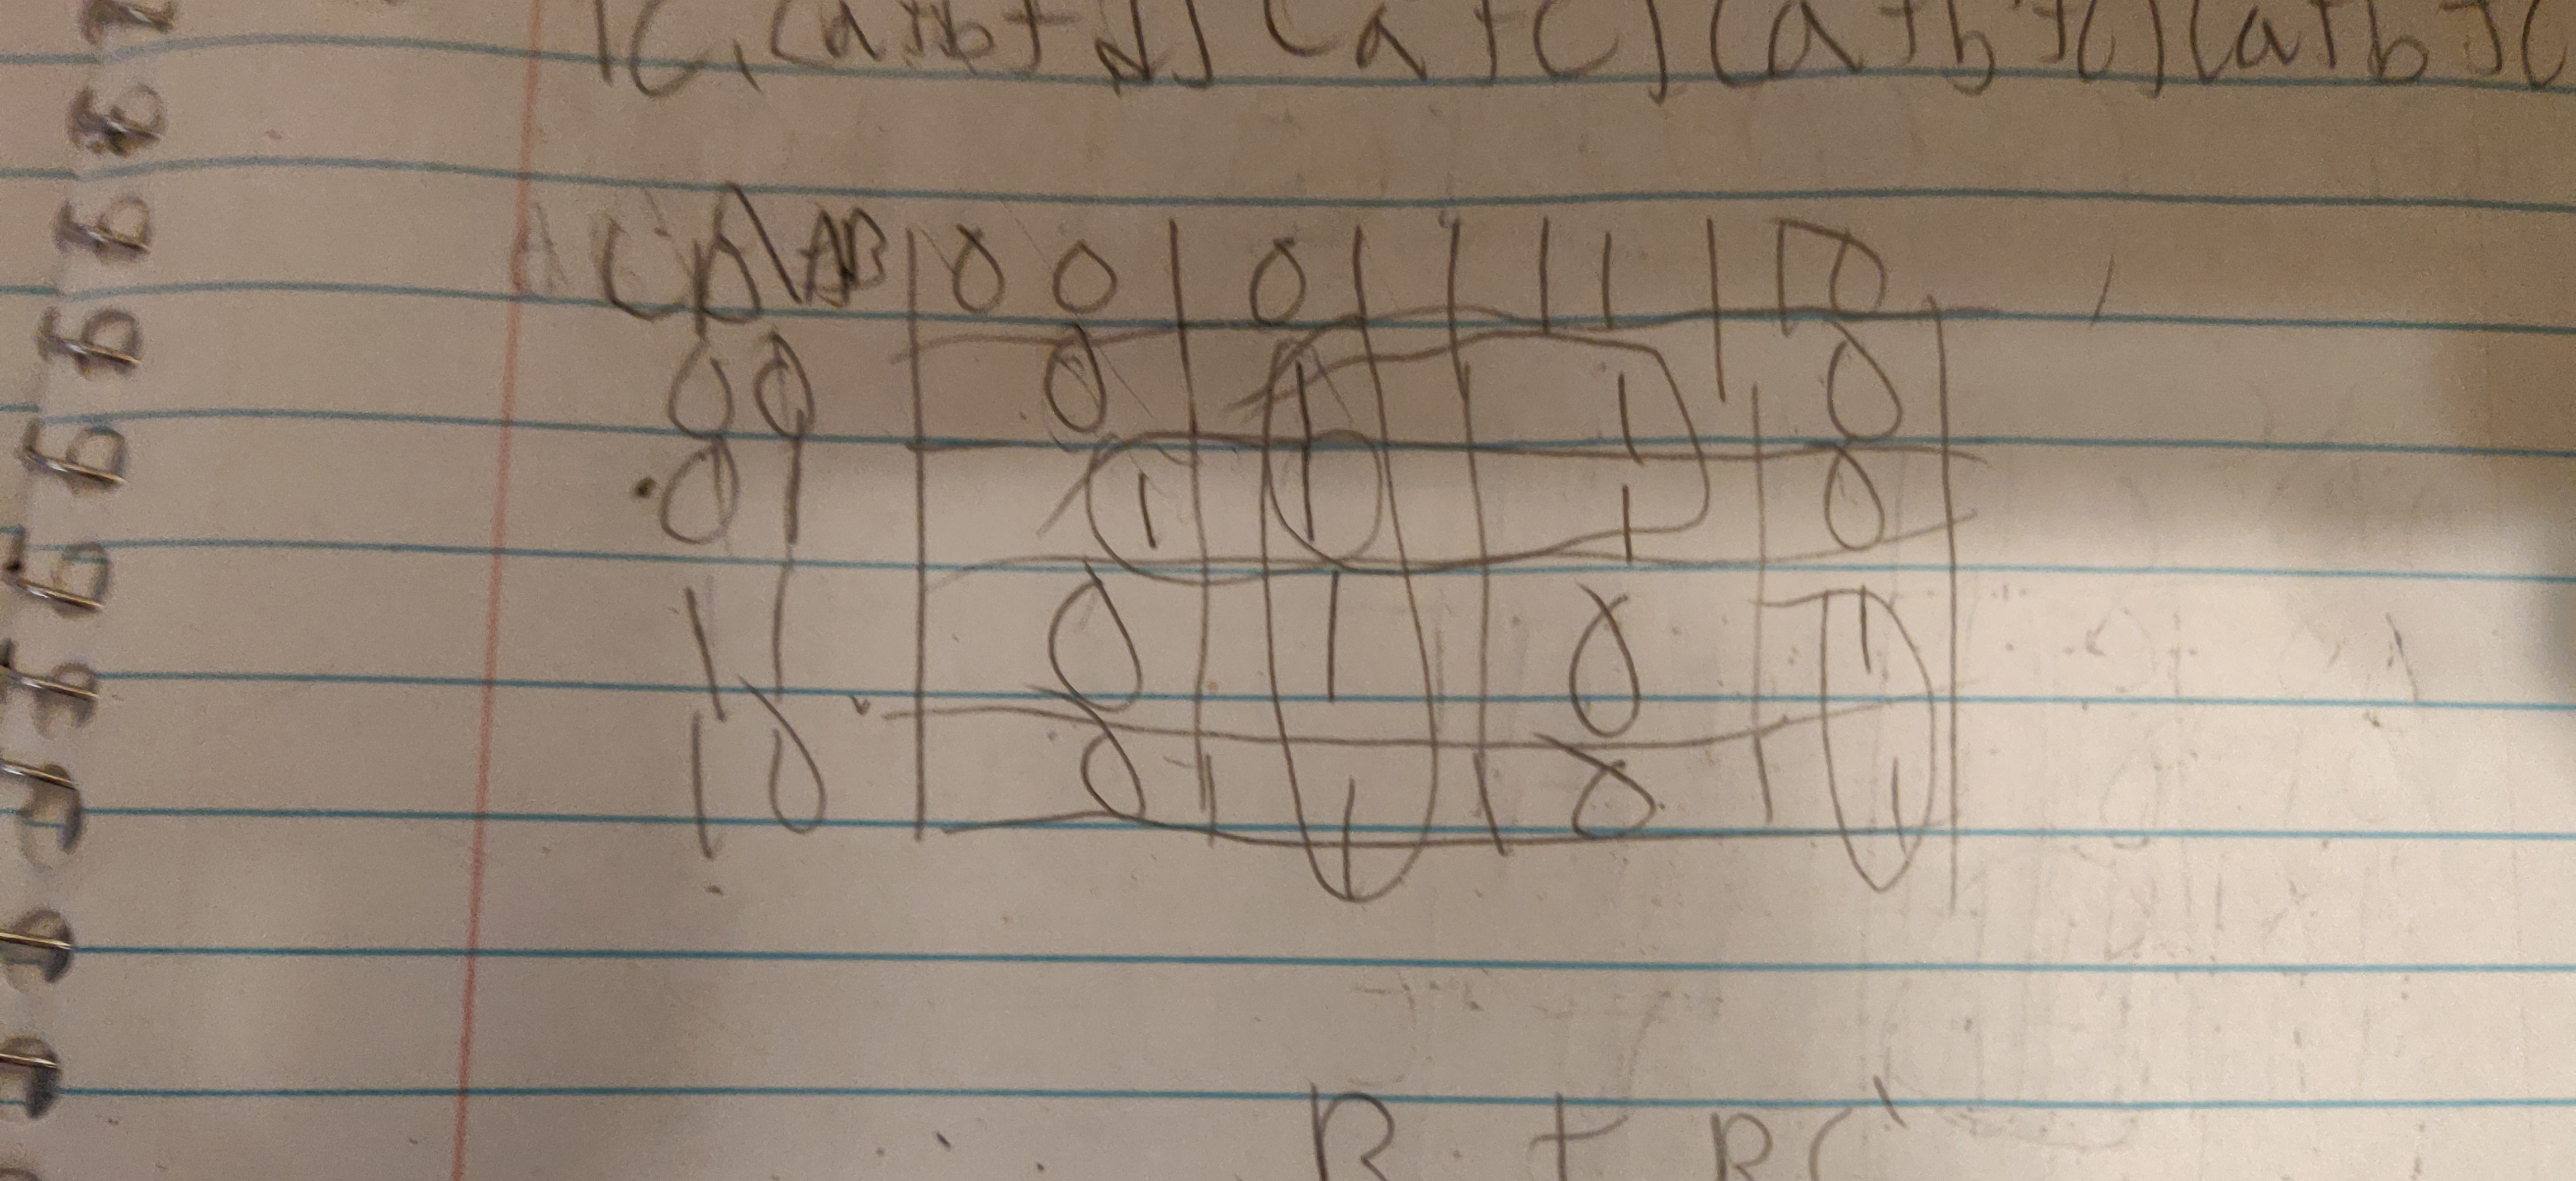 (a+b+d) (a+c) (a+b'+c) (a+b+c
CD\AB 00 01 11 10
00 0 1 1 0
01 1 1 1 0
11 0 1 0 1
10 0 1 0 1
B + BC'